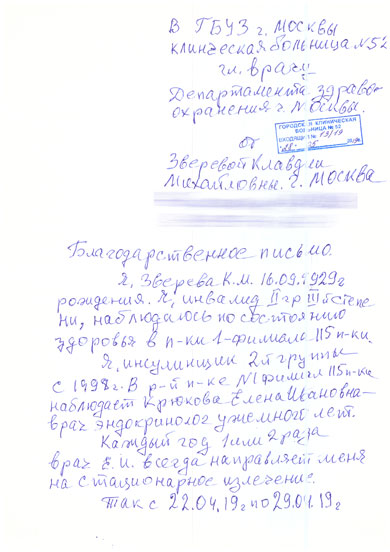 В ГБУЗ г. Москвы
клинческая больница N52
гл. врачу
Департамента здраво-
охранения г. Москвы.
ГОРОДСКАЯ КЛИНИЧЕСКАЯ
БОЛЬНИЦА № 52
от
Зверевой Клавдии
Михайловны. г. Москва
Благодарственное письмо.
Я, Зверева К.М. 16.09.1929г
рождения. Я, инвалид II гр III степе
ни, наблюдаюсь по состоянию
здоровья в п-ки 1-филиале 115 п-ки.
Я инсулинщик 2й группы
с 1998г. В р-й п-ке N1 филиал 115 п-ки
наблюдает Крюкова Елена Ивановна-
врач эндокринолог уже много лет.
Каждый год 1 или 2 раза
врач Е.И. всегда направляет меня
на стационарное излечение.
Так с 22.04.19г по 29.04.19г